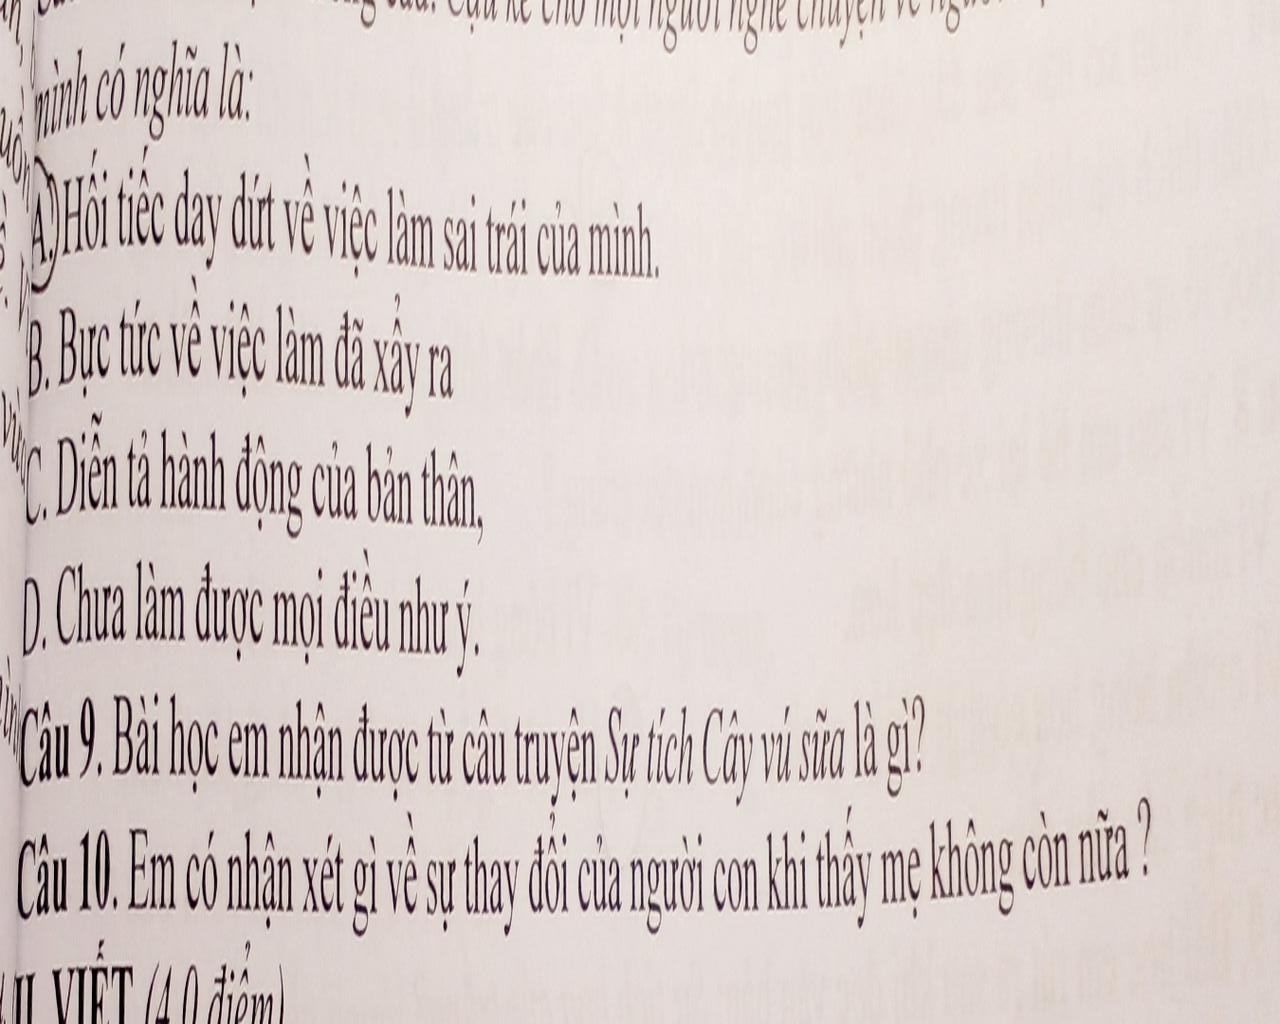 Cậu kể cho mọi người nghe chuyện về
mình có nghĩa là:
A. Hối tiếc day dứt về việc làm sai trái của mình.
B. Bực tức về việc làm đã xẩy ra
C. Diễn tả hành động của bản thân,
D. Chưa làm được mọi điều như ý.
Câu 9. Bài học em nhận được từ câu truyện Sự tích Cây vú sữa là gì?
Câu 10. Em có nhận xét gì về sự thay đổi của người con khi thấy mẹ không còn nữa ?
II. VIẾT (4.0 điểm)